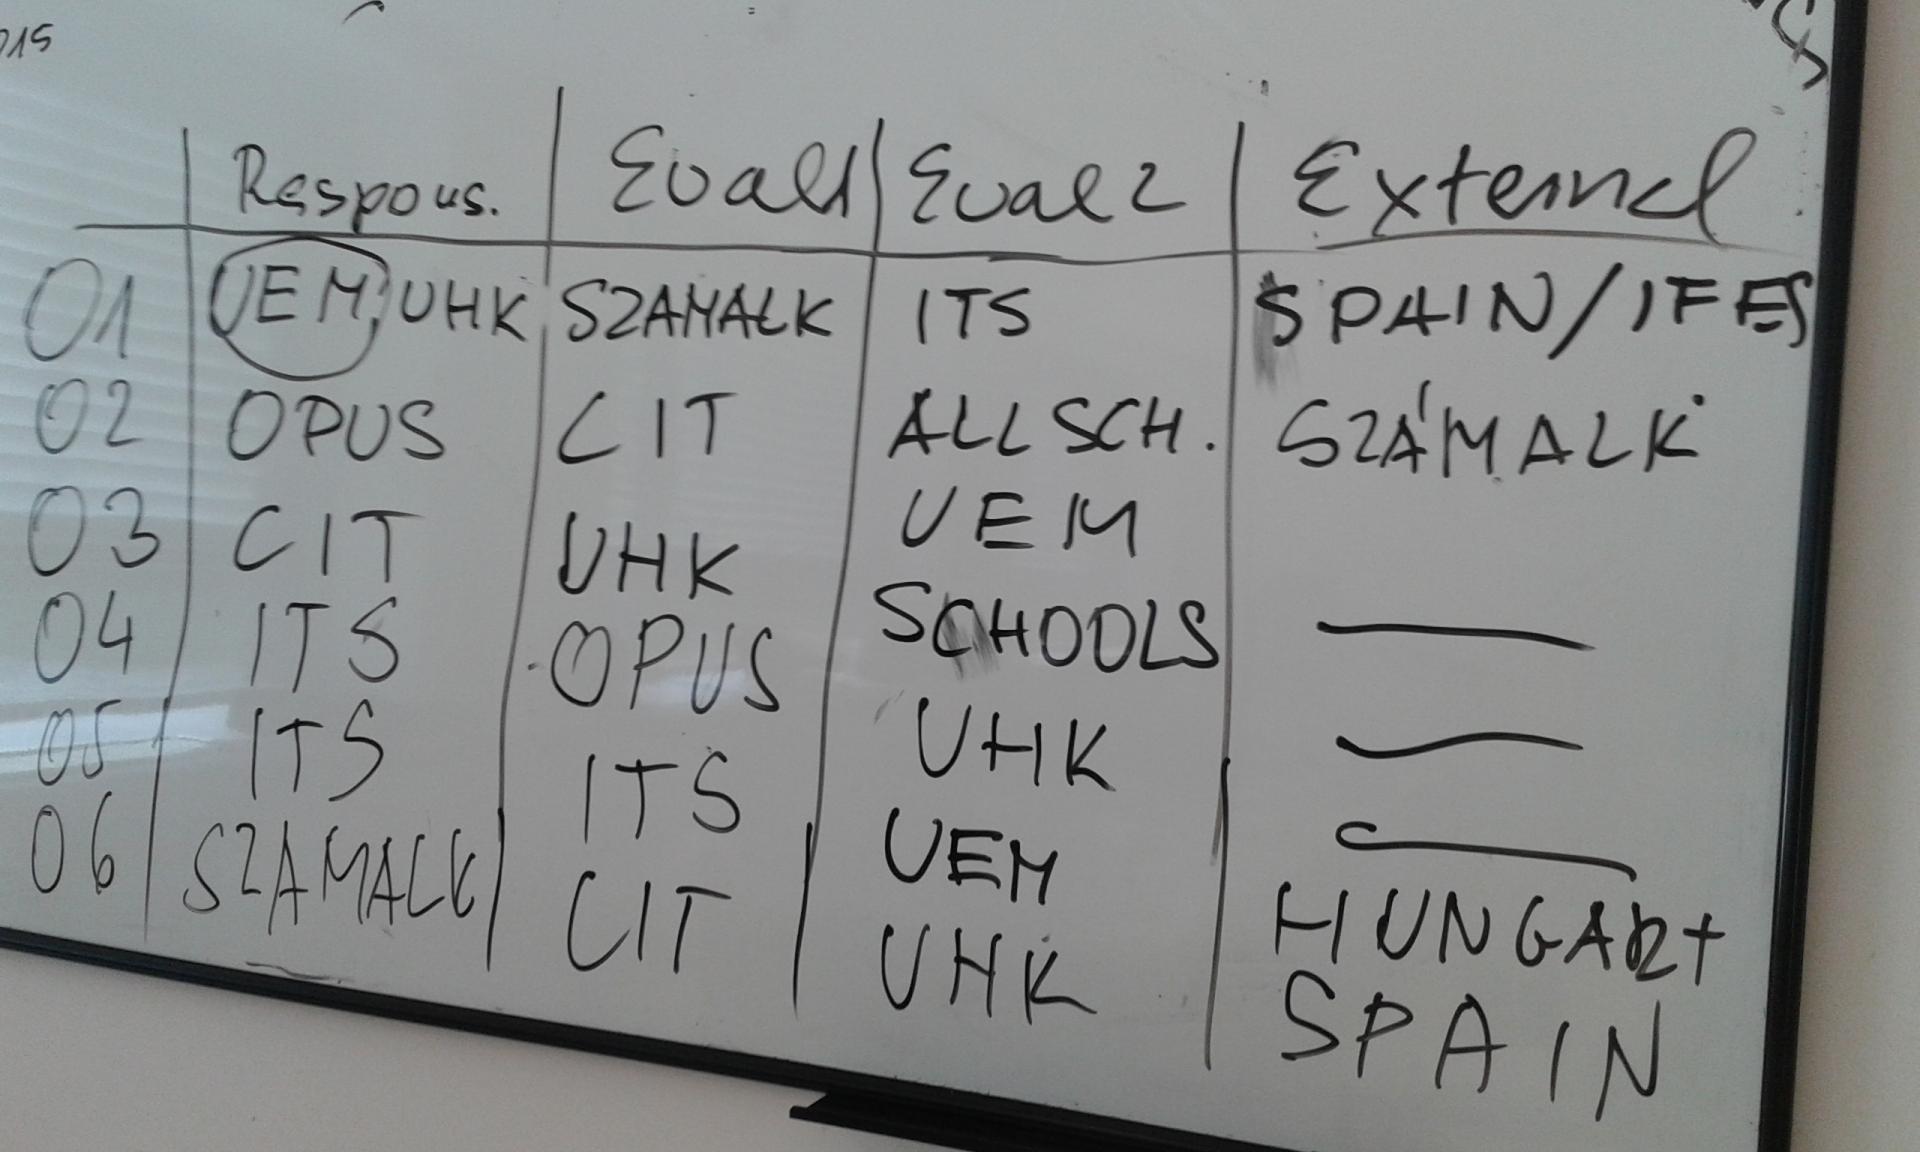 015
Respons. Eval1 Eval2 External
01 UEM, UHK SZAMALK ITS SPAIN/IFES
02 OPUS CIT ALL SCH. SZÁMALK
03 CIT UHK UEM
04 ITS OPUS SCHOOLS —
05 ITS ITS UHK —
06 SZAMALK CIT UEM —
UHK HUNGARY
SPAIN